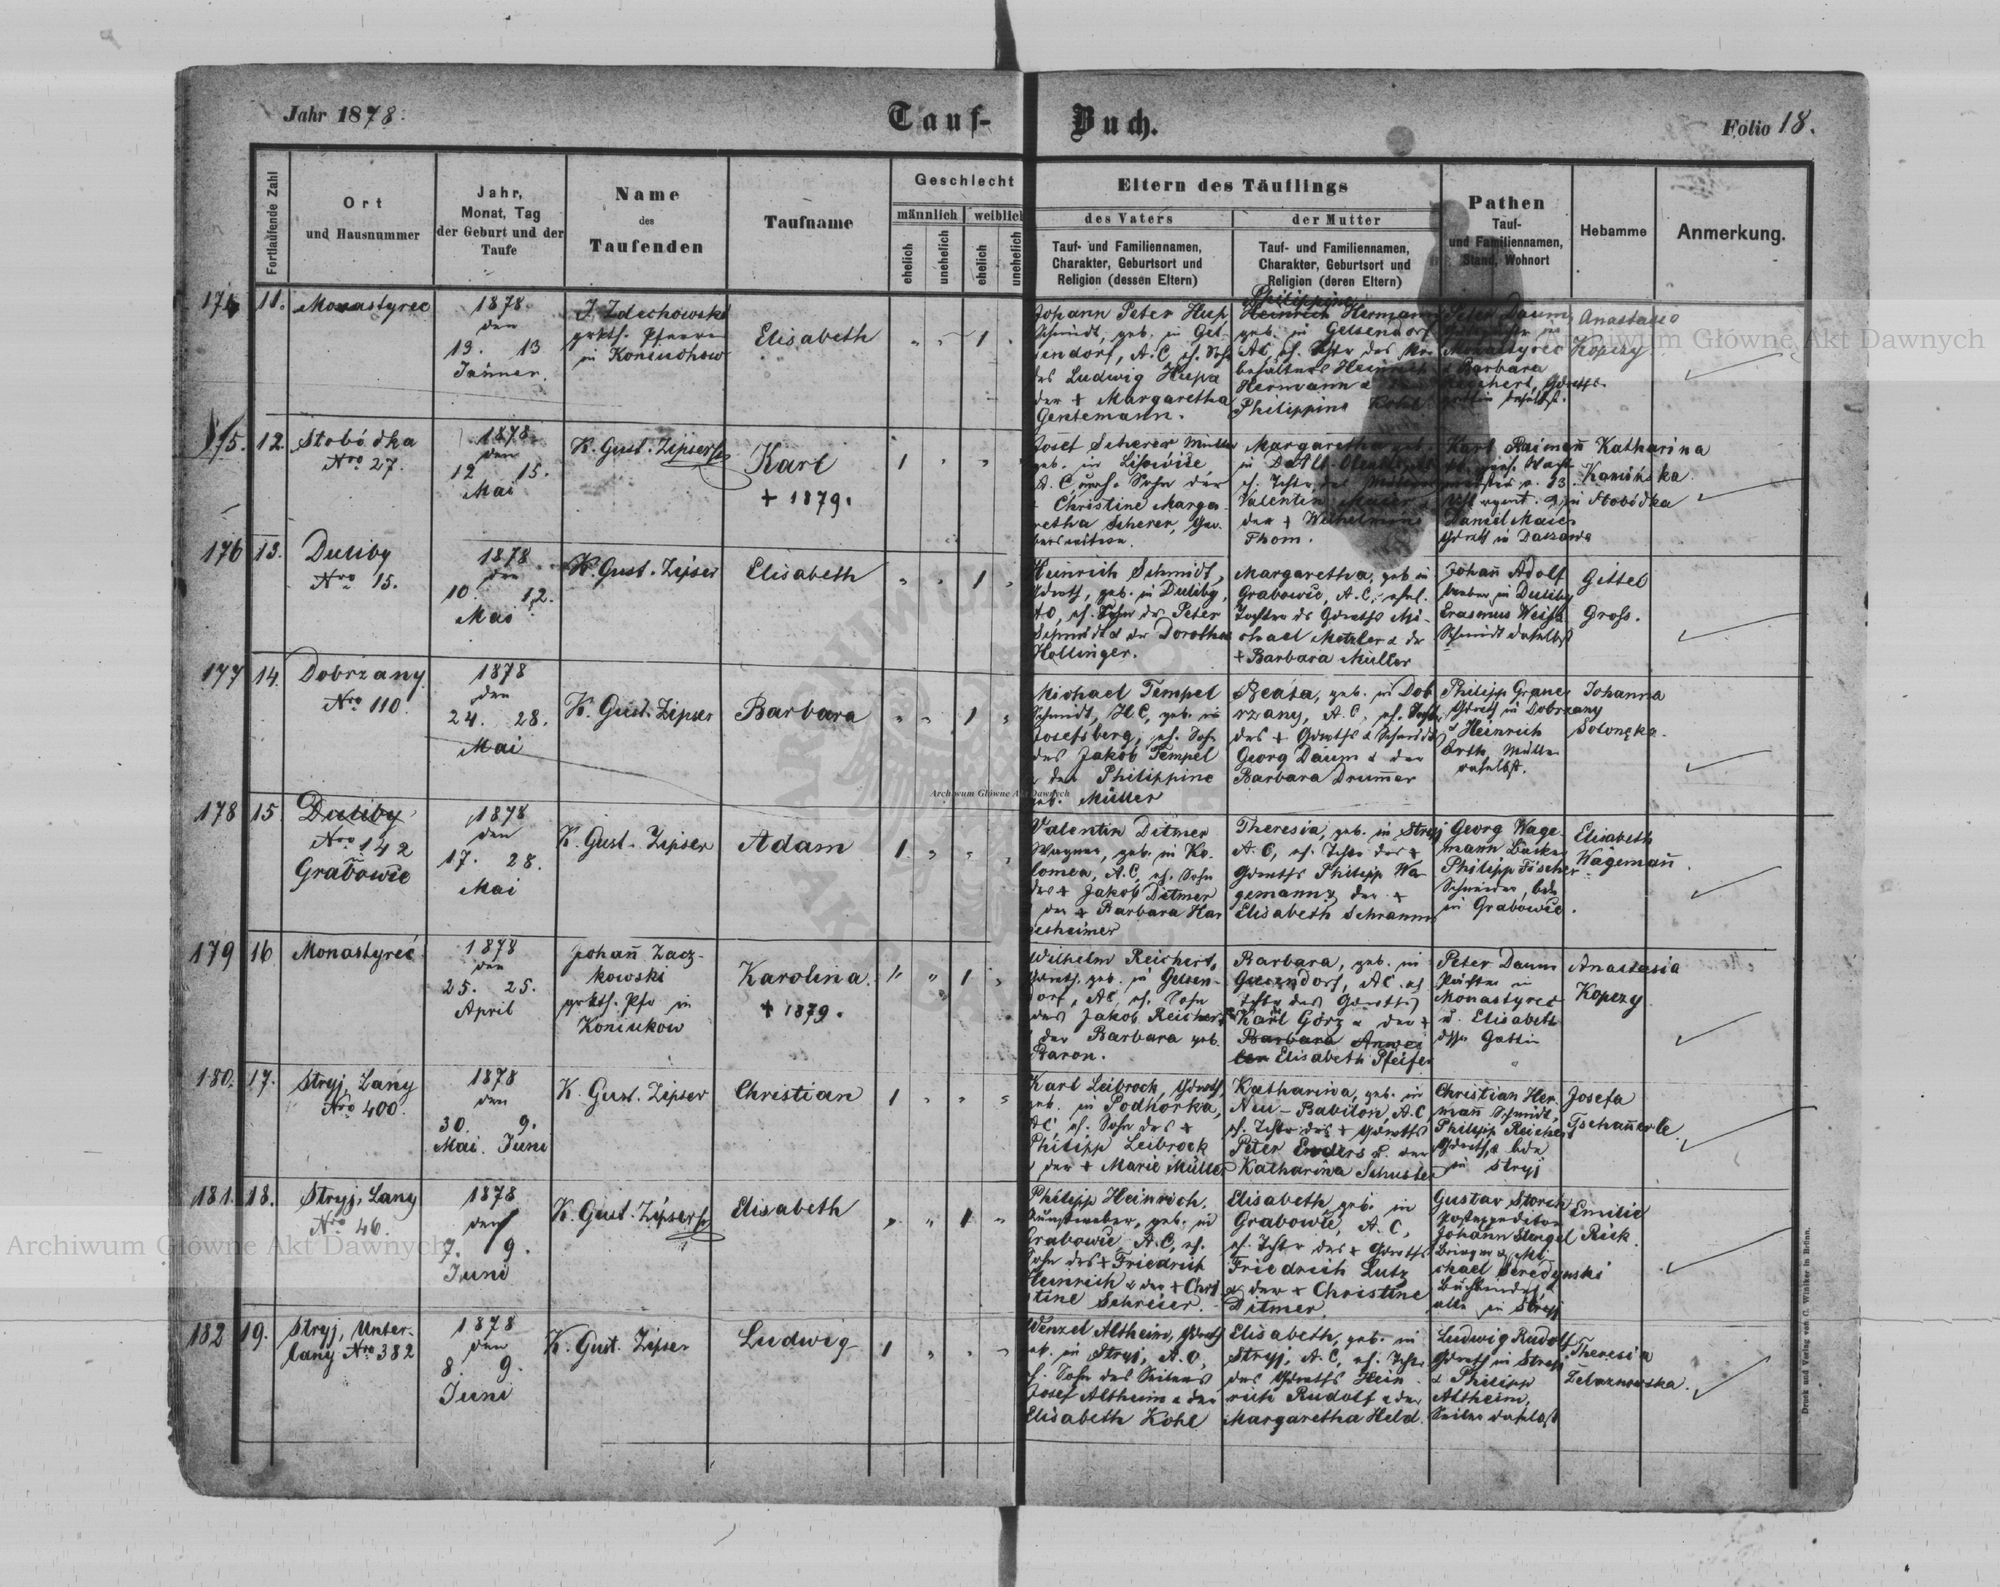 Jahr 1878.
Tauf-
Buch.
Folio 18.
Fortlaufende Zahl
Ort
und Hausnummer
Jahr,
Monat, Tag
der Geburt und der
Taufe
Name
des
Taufenden
Taufname
Geschlecht
männlich
weiblich
ehelich
unehelich
ehelich
unehelich
Eltern des Täuflings
des Vaters
Tauf- und Familiennamen,
Charakter, Geburtsort und
Religion (dessen Eltern)
der Mutter
Tauf- und Familiennamen,
Charakter, Geburtsort und
Religion (deren Eltern)
Pathen
Tauf-
und Familiennamen,
Stand, Wohnort
Hebamme
Anmerkung.
174 11. Monastyrec
1878
den
13. 13
Jänner.
J. Zdechowski
grkth. Pfarrer
in Koniuchow
Elisabeth
1
Johann Peter Hup
Schmidt, geb. in Gel-
sendorf, A.C, eh. Sohn
des Ludwig Hupa
der + Margaretha
Gentemann.
Philippine
Heinrich Hermann
geb. in Gelsendorf
AC, eh. Tchtr des
Heinrich
Hermann &
Philippine Kohl
Peter Daum
in
Monastyrec
& Barbara
Reichert,
Anastasia
Kopczy
175. 12. Stobódka
Nro 27.
1878
den
12 15.
Mai
K. Gust. Zipser
Karl
+ 1879.
1
Josef Scherer Müller
geb. in Lisowice,
A.C, uneh. Sohn der
Christine Marga-
retha Scherer,
Margaretha geb.
in
eh. Tchtr des
Valentin Maier &
der + Wilhelmine
Thom.
Karl Raimann
Daniel Maier
Gdrwth in Daszawa
Katharina
Kamińska
in Stobódka
176 13. Duliby
Nro 15.
1878
den
10. 12.
Mai
K. Gust. Zipser
Elisabeth
1
Heinrich Schmidt,
Gdrwth, geb. in Duliby,
AC, eh. Sohn des Peter
Schmidt & der Dorothea
Hollinger.
Margaretha, geb. in
Grabowic, A.C, ehel.
Tochter des Gdrwths Mi-
chael Metzler & der
+ Barbara Müller
Johann Adolf
Weber in Duliby
Erasmus Weiss
Schmidt daselbst
Gittel
Gross.
177 14. Dobrzany
Nro 110.
1878
den
24. 28.
Mai
K. Gust. Zipser
Barbara
1
Michael Tempel
Schmidt, H.C, geb. in
Josefsberg, eh. Sohn
des Jakob Tempel
& der Philippine
geb. Müller
Beata, geb. in Dob
rzany, A.C, eh. Tochter
des + Gdrwths & Schmidt
Georg Daum & der
Barbara Drummer
Philipp Graner
Gdrwth in Dobrzany
& Heinrich
Orth, Müller
daselbst.
Johanna
Solonęka.
178 15. Duliby
Nro 142
Grabowic
1878
den
17. 28.
Mai
K. Gust. Zipser
Adam
1
Valentin Ditmer
Wagner, geb. in Ko-
lomea, A.C, eh. Sohn
des + Jakob Ditmer
& der + Barbara Har
desheimer
Theresia, geb. in Stryj
A.C, eh. Tchtr des +
Gdrwths Philipp Wa-
gemann & der +
Elisabeth Schramm
Georg Wage-
mann Bäcker
Philipp Fischer
Schneider, bde
in Grabowic.
Elisabeth
Wagemann.
179 16 Monastyrec
1878
den
25. 25.
April
Johann Zacz-
kowski
grkth. Pfr in
Koniukow
Karolina
+ 1879.
1
Wilhelm Reichert,
Gdrwth, geb. in Gelsen-
dorf, AC, eh. Sohn
des Jakob Reichert
& der Barbara geb.
Baron.
Barbara, geb. in
Gelsendorf, AC, eh
Tchtr des Gdrwths
Karl Görz & der +
Barbara Anwei
ler Elisabeth Pfeifer
Peter Daum
Pächter in
Monastyrec
u. Elisabeth
dssn Gattin
Anastasia
Kopczy
180. 17. Stryj, Lany
Nro 400.
1878
den
30. 9.
Mai. Juni
K. Gust. Zipser
Christian
1
Karl Leibrock, Gdrwth,
geb. in Podhorka,
AC, eh. Sohn des +
Philipp Leibrock
& der + Marie Müller
Katharina, geb. in
Neu-Babilon, A.C
eh. Tchtr des + Gdrwths
Peter Enders u. der
Katharina Schuster
Christian Her-
mann Schmidt,
Philipp Reichert
Gdrwth, bde
in Stryj
Josefa
Tschannerle.
181. 18. Stryj, Lany
Nro 46.
1878
den
7. 9.
Juni
K. Gust. Zipser
Elisabeth
1
Philipp Heinrich,
Kunstweber, geb. in
Grabowic, A.C, eh.
Sohn des + Friedrich
Heinrich & der + Chri
stine Schreier.
Elisabeth, geb. in
Grabowic, A.C,
eh. Tchtr des + Gdrwths
Friedrich Lutz
& der + Christine
Ditmer
Gustav Storch
Postexpeditor
Johann Stengel
& Mi-
chael Seredynski
Buchbinder,
alle in Stryj
Emilie
Rick.
182 19. Stryj, Unter-
lany Nro 382
1878
den
8. 9.
Juni
K. Gust. Zipser
Ludwig
1
Wenzel Altheim, Gdrwth
geb. in Stryj, A.C,
eh. Sohn des Seilers
Josef Altheim & der
Elisabeth Kohl
Elisabeth, geb. in
Stryj, A.C, eh. Tchtr
des Gdrwths Hein-
rich Rudolf & der
Margaretha Held.
Ludwig Rudolf
Gdrwth in Stryj
& Philipp
Altheim,
Seiler daselbst
Theresia
Zeloznowska.
Druck und Verlag von C. Winiker in Brünn.
Archiwum Główne Akt Dawnych
Archiwum Główne Akt Dawnych
Archiwum Główne Akt Dawnych